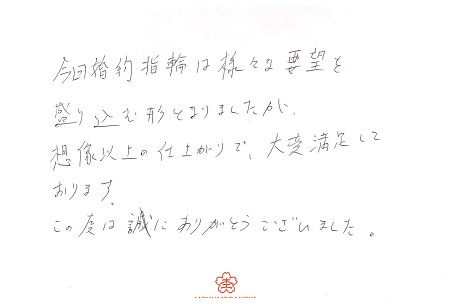 今回婚約指輪は様々な要望を
盛り込む形となりましたが、
想像以上の仕上がりで、大変満足して
おります。
この度は誠にありがとうございました。